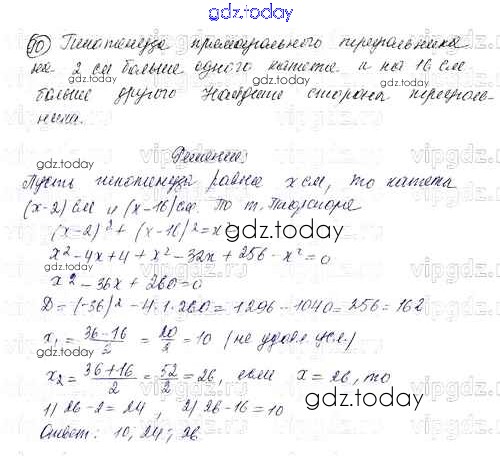 gdz.today
10) Гипотенуза прямоугольного треугольника
на 2 см больше одного катета и на 16 см
больше другого Найдите стороны треуголь-
ника.
gdz.today
Решение:
Пусть гипотенуза равна x см, то катета
(x-2) см и (x-16) см. По т. Пифагора
(x-2)² + (x-16)² = x²
gdz.today
x² - 4x + 4 + x² - 32x + 256 - x² = 0
x² - 36x + 260 = 0
gdz.today
D = (-36)² - 4·1·260 = 1296 - 1040 = 256 = 16²
x₁ = 36-16/2 = 20/2 = 10 (не удовл усл.)
gdz.today
x₂ = 36+16/2 = 52/2 = 26, если x = 26, то
1) 26-2 = 24, 2) 26-16 = 10
gdz.today
Ответ: 10, 24, 26
gdz.today
vipgdz.ru